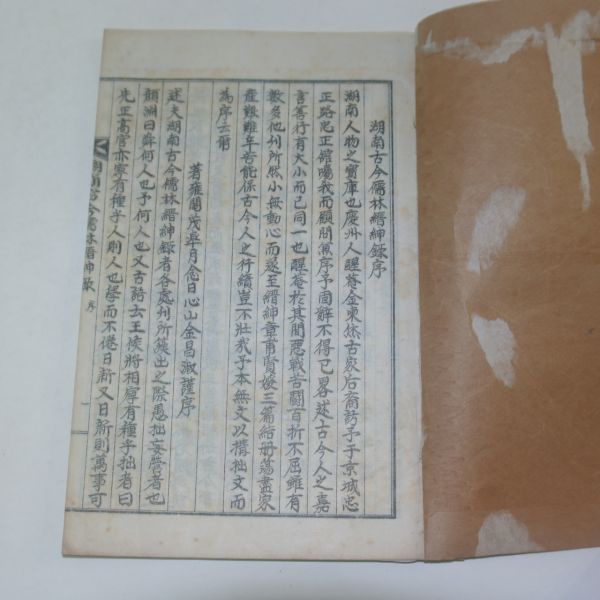 湖南古今儒林縉紳錄序
湖南人物之寶庫也慶州人醒菴金東烋古家后裔訪予于京城忠
正路忠正舘囑我而顧問兼序予固辭不得已畧述古今人之嘉
言善行有大小而已同一也醒菴於其間惡戰苦鬪百折不屈雖有
數多他州所然小無動心而遂至縉紳章甫賢媛三篇結册蕩盡家
產艱難辛苦能保古今人之行績豈不壯哉予本無文以搆拙文而
為序云爾
著雍閹茂皋月念日心山金昌淑謹序
述夫湖南古今儒林縉紳錄者各處州所簇出之際愚拙妄營者也
顏淵曰舜何人也予何人也又古語云王侯將相寧有種乎拙者曰
先正高官亦寧有種乎人則人也學而不倦日新又日新則萬事可
湖南古今儒林縉紳錄 序